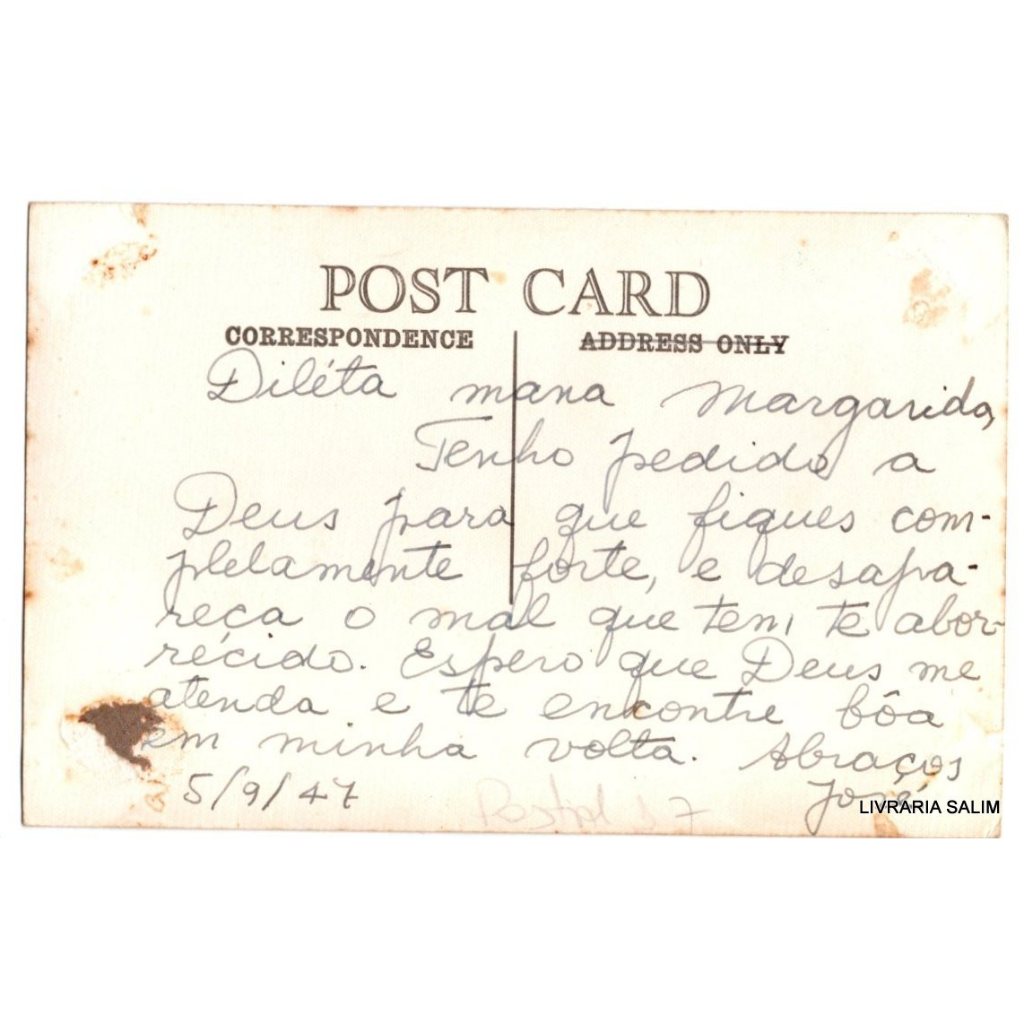 POST CARD
CORRESPONDENCE
ADDRESS ONLY
Diléta mana Margarida,
Tenho pedido a
Deus para que fiques com-
pletamente forte, e desapa-
reça o mal que tem te abor-
récido. Espero que Deus me
atenda e te encontre bôa
em minha volta. Abraços
José
5/9/47
LIVRARIA SALIM